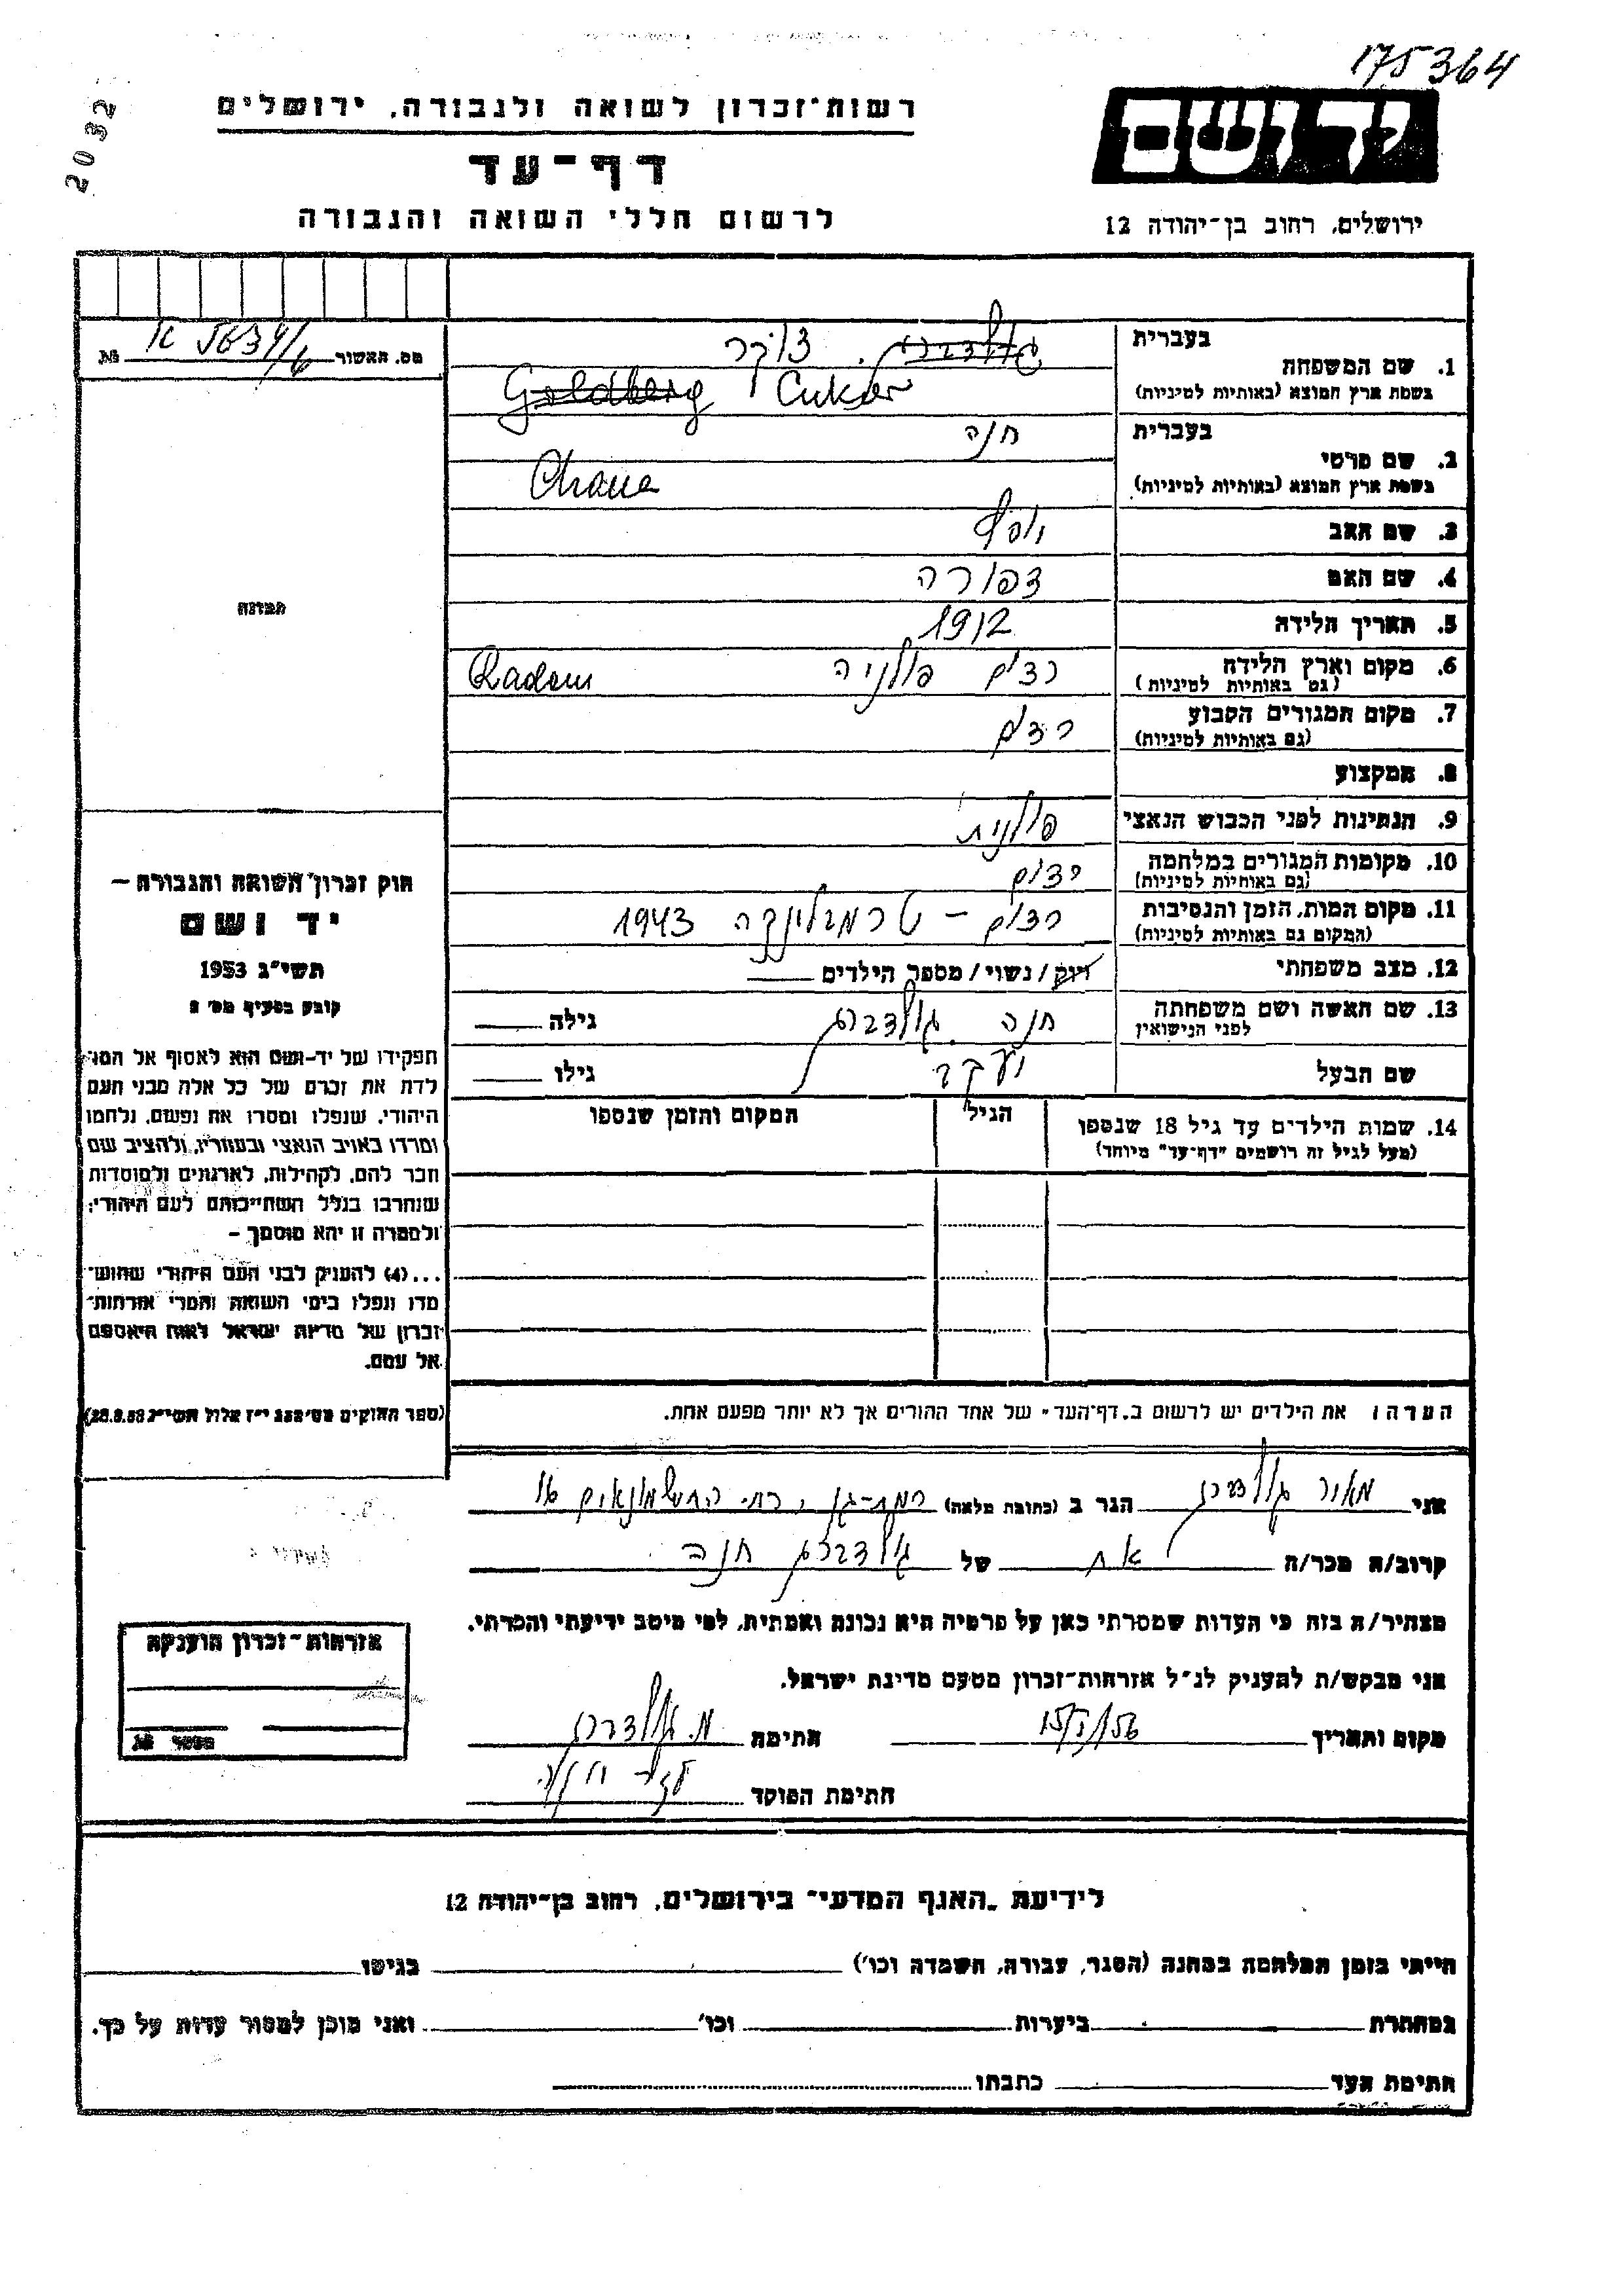 175364
2032
רשות־זכרון לשואה ולגבורה, ירושלים
יד ושם
דף־עד
לרשום חללי השואה והגבורה
ירושלים, רחוב בן־יהודה 12
מס. האשור №
1. שם המשפחה
בעברית גולדברג. צוקר
בשפת ארץ המוצא (באותיות לטיניות) Goldberg Cukor
2. שם פרטי
בעברית חנה
בשפת ארץ המוצא (באותיות לטיניות) Chana
3. שם האב יוסף
4. שם האם צפורה
5. תאריך הלידה 1912
6. מקום וארץ הלידה רצום פולניה Radom
(גם באותיות לטיניות)
7. מקום המגורים הקבוע רצום
(גם באותיות לטיניות)
8. המקצוע
9. הנתינות לפני הכבוש הנאצי פולנית
10. מקומות המגורים במלחמה רצום
(גם באותיות לטיניות)
11. מקום המות, הזמן והנסיבות רצום – טרמבלינקה 1943
(המקום גם באותיות לטיניות)
12. מצב משפחתי רווק/נשוי/מספר הילדים
13. שם האשה ושם משפחתה חנה גולדברג גילה
לפני הנישואין
שם הבעל יעקב גילו
14. שמות הילדים עד גיל 18 שנספו הגיל המקום והזמן שנספו
(מעל לגיל זה רושמים "דף־עד" מיוחד)
התמונה
חוק זכרון השואה והגבורה –
יד ושם
תשי"ג 1953
קובע בסעיף מס' 2
תפקידו של יד־ושם הוא לאסוף אל המו־
לדת את זכרם של כל אלה מבני העם
היהודי, שנפלו ומסרו את נפשם, נלחמו
ומרדו באויב הנאצי ובעוזריו, ולהציב שם
וזכר להם, לקהילות, לארגונים ולמוסדות
שנחרבו בגלל השתייכותם לעם היהודי;
ולמטרה זו יהא מוסמך –
...(4) להעניק לבני העם היהודי שהוש־
מדו ונפלו בימי השואה והמרי אזרחות־
זכרון של מדינת ישראל לאות היאספם
אל עמם.
(ספר החוקים מס' 132 י"ז אלול תשי"ג 28.8.53)
הערה: את הילדים יש לרשום ב„דף־העד" של אחד ההורים אך לא יותר מפעם אחת.
אני מאור גולדברג הגר ב (כתובת מלאה) רמת-גן, רח' החשמונאים
קרוב/ה מכר/ה אח של גולדברג חנה
מצהיר/ה בזה כי העדות שמסרתי כאן על פרטיה היא נכונה ואמתית, לפי מיטב ידיעתי והכרתי.
אני מבקש/ת להעניק לנ"ל אזרחות־זכרון מטעם מדינת ישראל.
מקום ותאריך חתימה מ. גולדברג
חתימת הפוקד
אזרחות־זכרון הוענקה
מספר №
לידיעת „האגף המדעי" בירושלים, רחוב בן־יהודה 12
הייתי בזמן המלחמה במחנה (הסגר, עבודה, השמדה וכו') בגיטו
במחתרת ביערות וכו' ואני מוכן למסור עדות על כך.
חתימת העד כתבתו